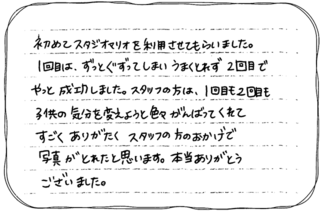 初めてスタジオマリオを利用させてもらいました。
1回目は、ずっとぐずってしまいうまくとれず2回目で
やっと成功しました。スタッフの方は、1回目も2回目も
子供の気分を変えようと色々がんばってくれて
すごくありがたくスタッフの方のおかげで
写真がとれたと思います。本当ありがとう
ございました。